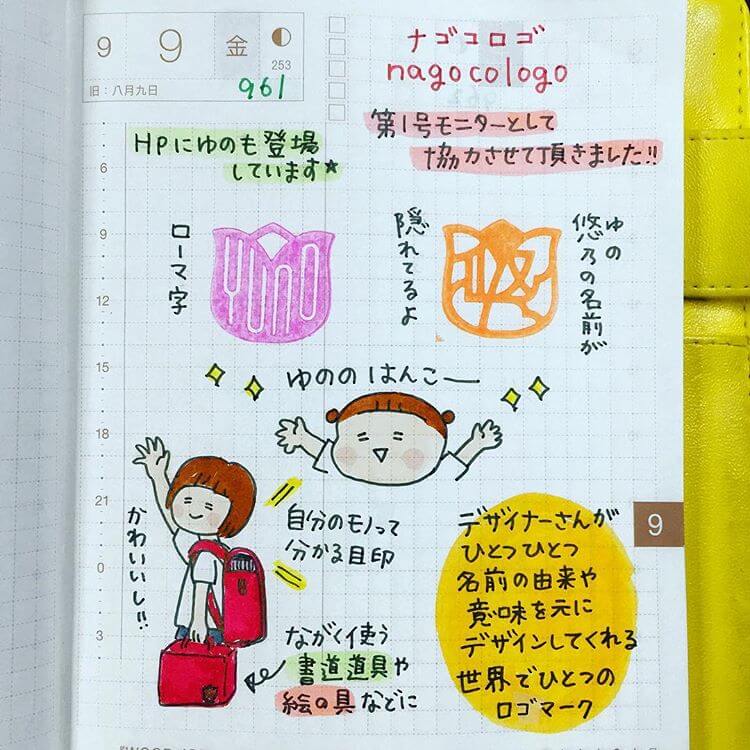 9
9
金
253
旧：八月九日
961
ナゴコロゴ
nagocologo
第1号モニターとして
協力させて頂きました!!
HPにゆのも登場
しています★
ローマ字
YUNO
隠れてるよ
ゆの
悠乃の名前が
ゆののはんこー
自分のモノって
分かる目印
かわいいし!!
ながく使う
書道道具や
絵の具などに
デザイナーさんが
ひとつひとつ
名前の由来や
意味を元に
デザインしてくれる
世界でひとつの
ロゴマーク
6
9
12
15
18
21
0
3
9